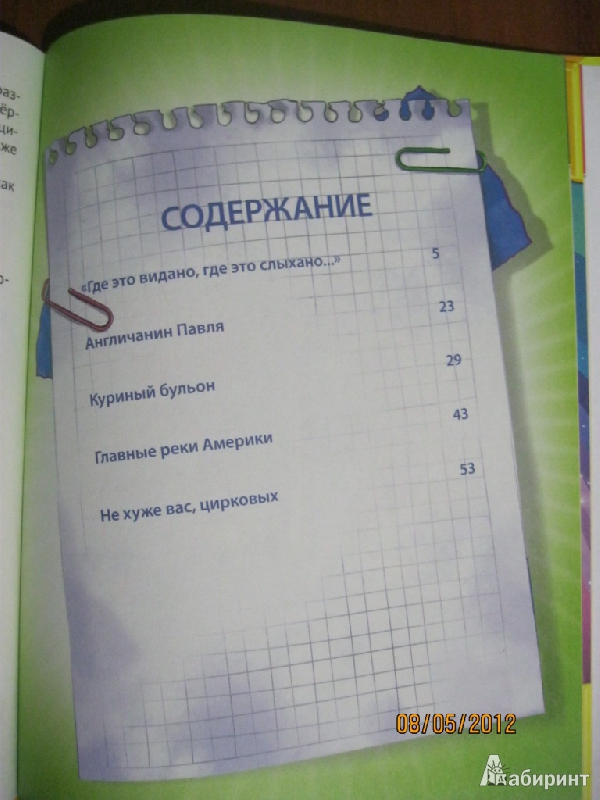 раз-
ёр-
ци-
же
ак
о-
СОДЕРЖАНИЕ
«Где это видано, где это слыхано...» 5
Англичанин Павля 23
Куриный бульон 29
Главные реки Америки 43
Не хуже вас, цирковых 53
08/05/2012
Лабиринт